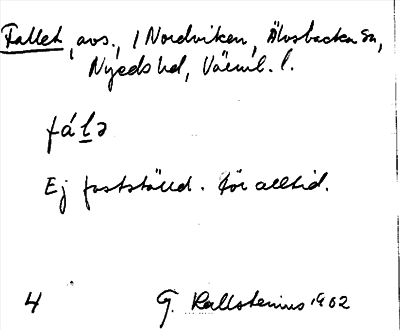 Fallet, avs., i Nordviken, Älvsbacka sn,
Nyeds hd, Värml. l.
fálə
Ej fastställd. För alltid.
4 G. Kallstenius 1902